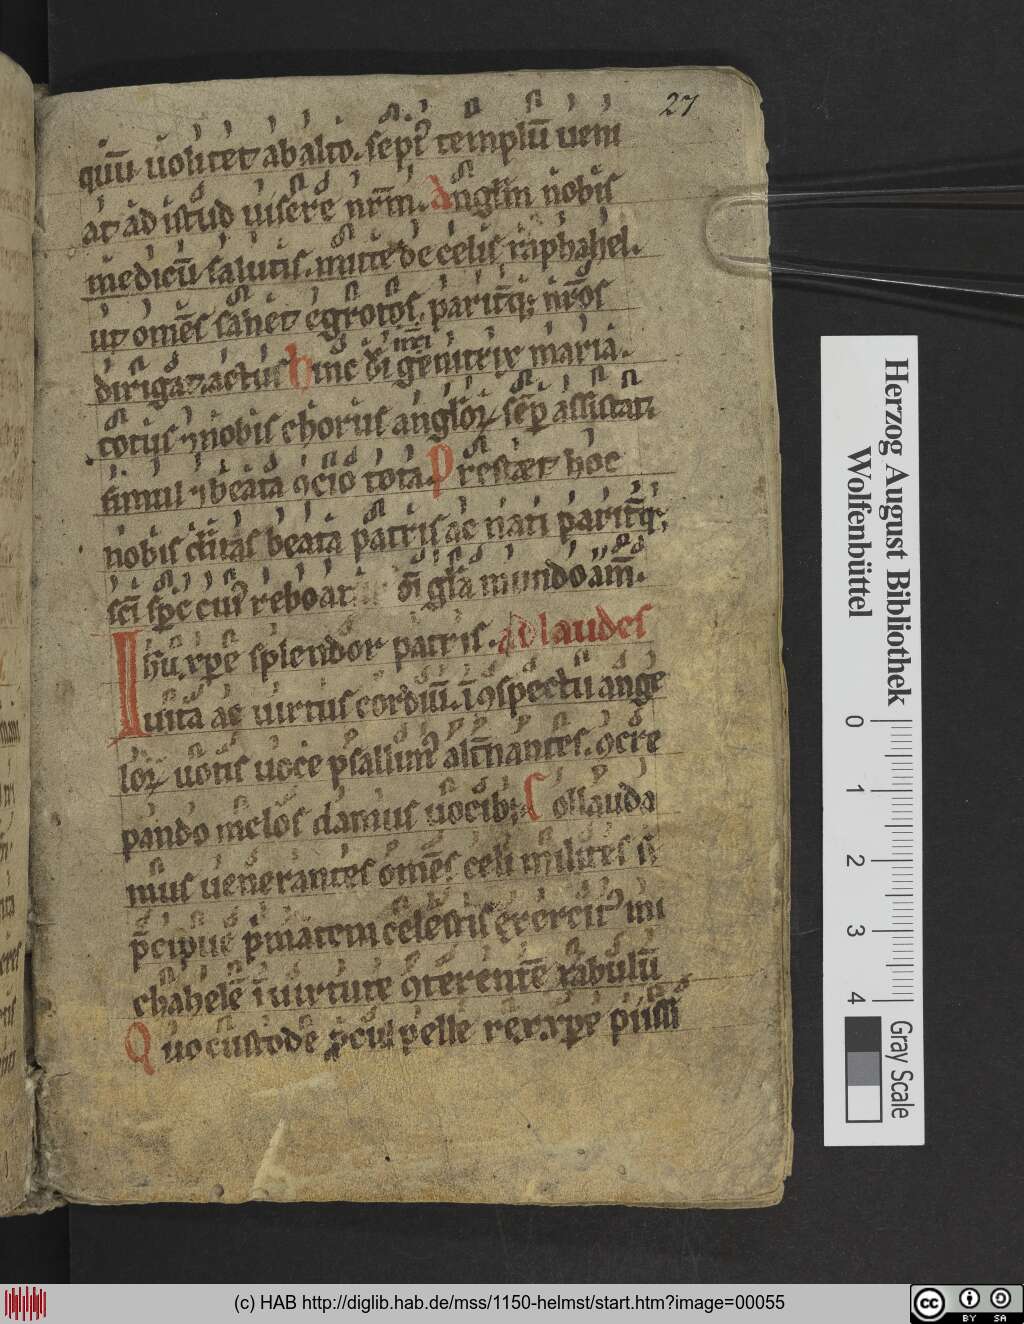 27
quū uolitet ab alto. sepi᷒ templū ueni
at ad istud uisere nr̄m. Angl̄m nobis
medicū salutis. mitte de celis raphahel.
ut om̄es sanet egrotos. parit̄q; nr̄os
dirigat actus hinc dī genitrix maria.
nr̄i
totus ⁊ nobis chorus angl̄oꝝ sēp assistat.
simul ⁊ beata ꝯcio tota. Prestæt hoc
nobis dēitas beata patris ac nati parit̄q;
scī sp̄c cui᷒ reboat ōi gl̄a mundo am̄.
Ihū xp̄e splendor patris. ad laudes
uita ac uirtus cordiū. ī ꝯspectu ange
loꝝ uotis uoce psallim᷒ alt̄nantes. ꝯcre
pando melos damus uocib; Collauda
mus uenerantes om̄es celi milites s;
p̄cipue p̄matem celestis exercit᷒ mi
chahelē ī uirtute ꝯterentē zabulū
Quo custode p̄cul pelle rex xp̄e piissi
Herzog August Bibliothek
Wolfenbüttel
0 1 2 3 4
Gray Scale
(c) HAB http://diglib.hab.de/mss/1150-helmst/start.htm?image=00055
cc BY SA